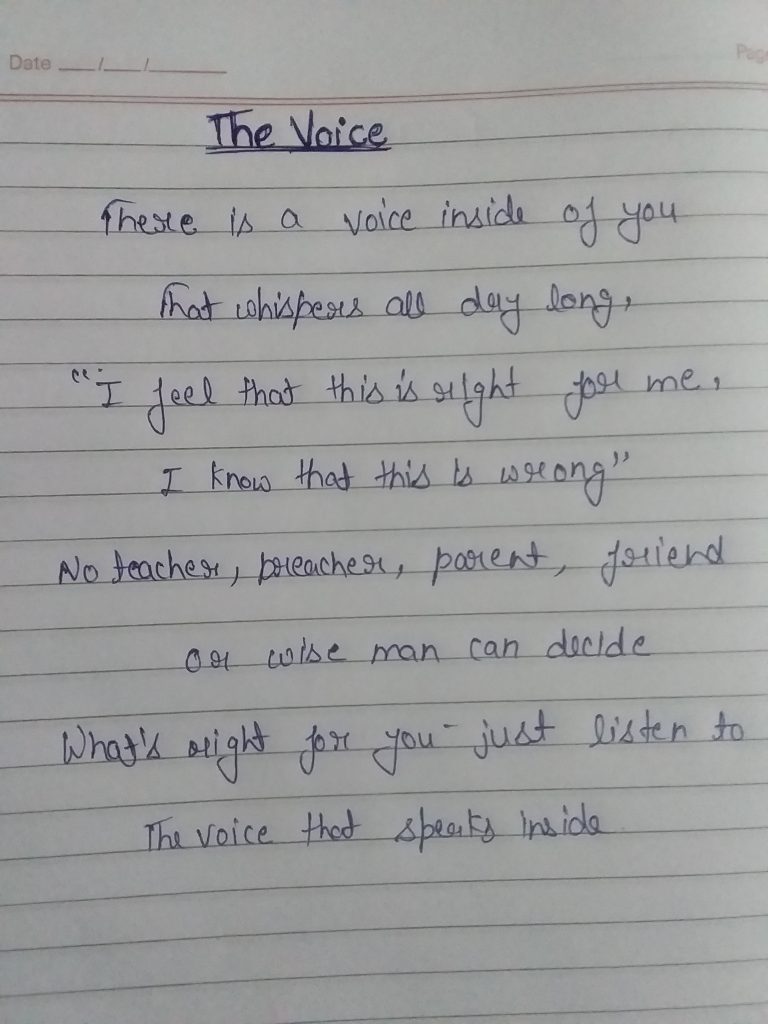 Date __/__/____
Pag
The Voice
There is a voice inside of you
That whispers all day long,
"I feel that this is right for me,
I know that this is wrong"
No teacher, preacher, parent, friend
or wise man can decide
What's right for you - just listen to
The voice that speaks inside